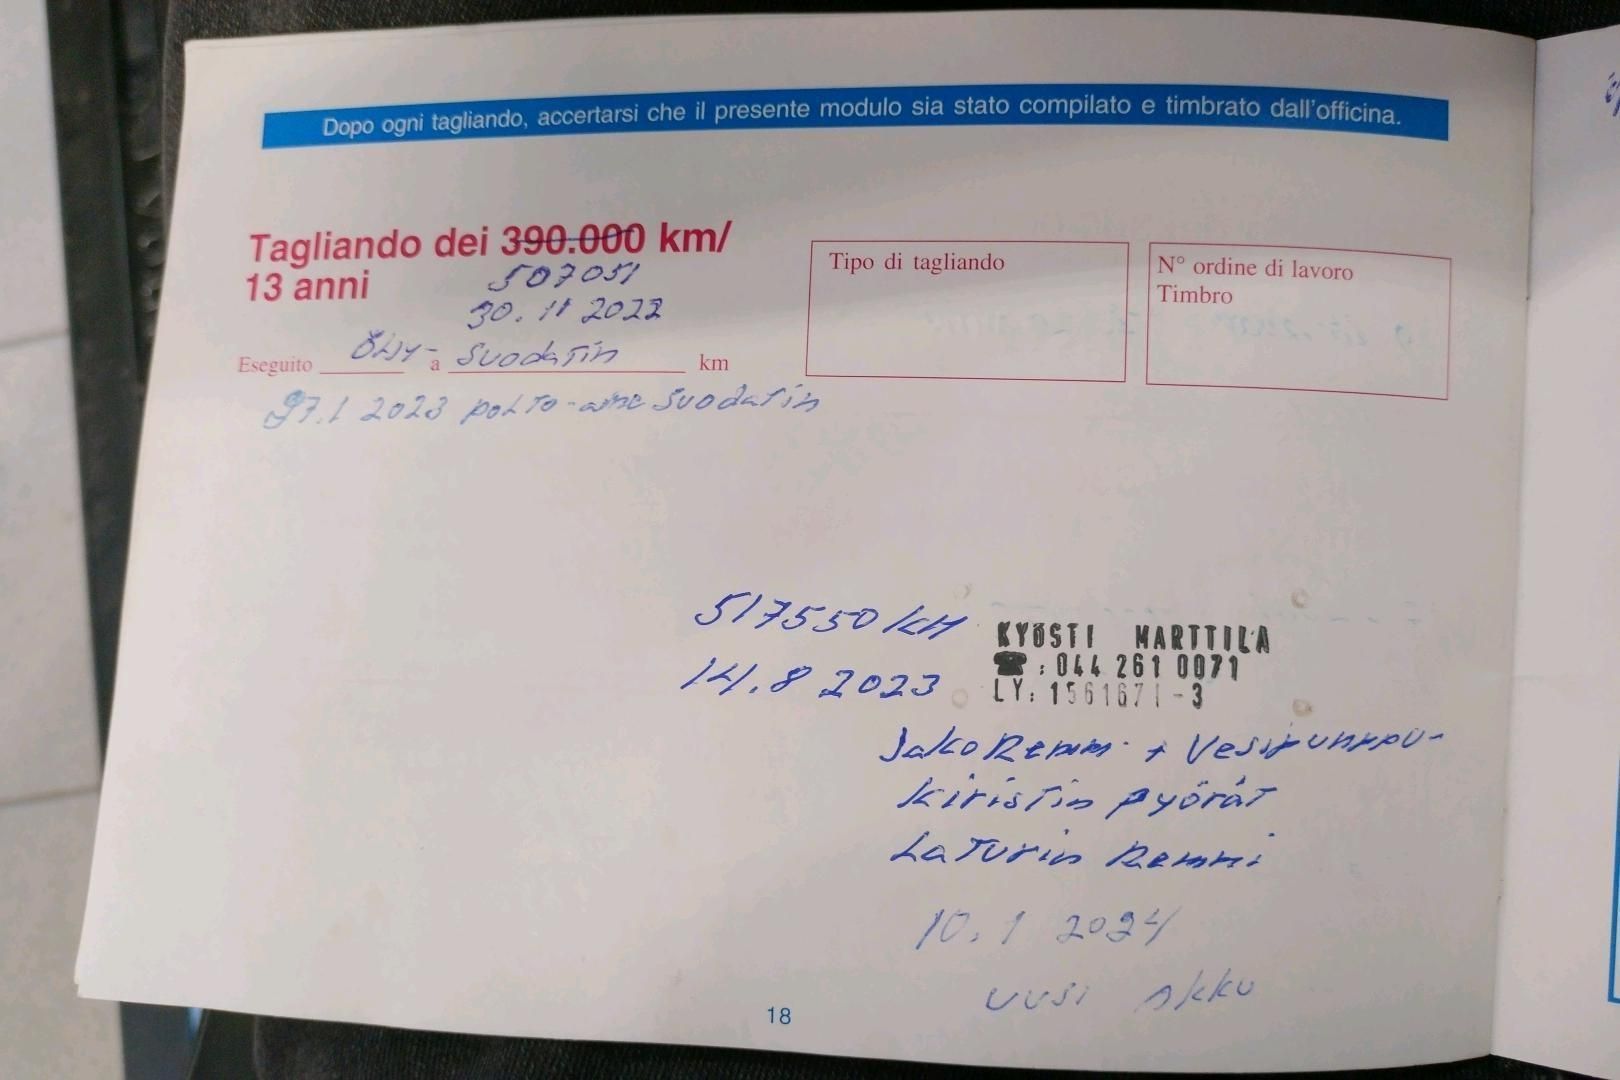 Dopo ogni tagliando, accertarsi che il presente modulo sia stato compilato e timbrato dall'officina.
Tagliando dei 390.000 km/
13 anni
507051
30.11 2022
Eseguito öljy- a suodatin km
27.1 2023 polto-aine suodatin
Tipo di tagliando
N° ordine di lavoro
Timbro
517550 KM
14.8 2023
KYÖSTI MARTTILA
☎: 044 261 0071
LY: 1561671-3
Jako Remmi + Vesipumppu-
kiristin pyörät
Laturin Remmi
10.1 2024
uusi Akku
18